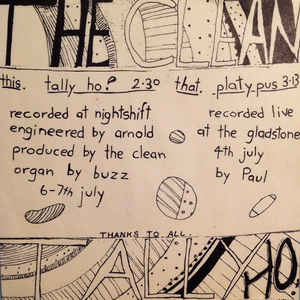 THE CLEAN
this. tally ho! 2·30 that. platypus 3·13
recorded at nightshift
engineered by arnold
produced by the clean
organ by buzz
6-7th july
recorded live
at the gladstone
4th july
by Paul
THANKS TO ALL
TALLY HO.